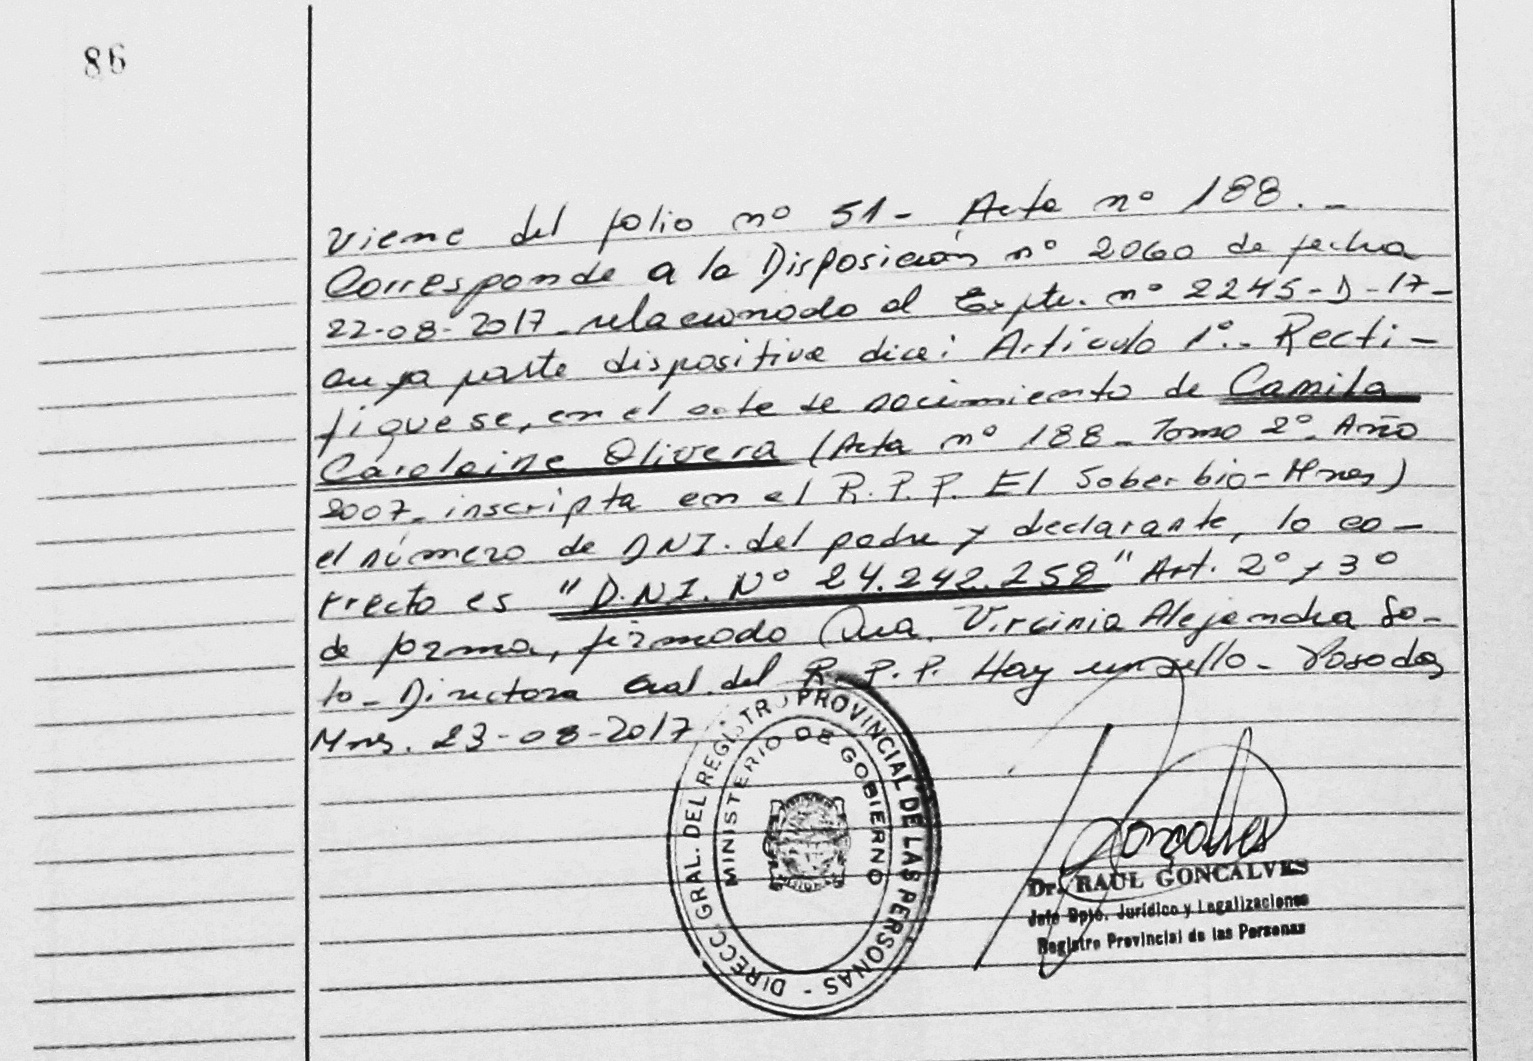 86
Viene del folio nº 51 - Acta nº 188. -
Corresponde a la Disposición nº 2060 de fecha
22-08-2017 - relacionado al Expte. nº 2245-D-17-
cuya parte dispositiva dice: Artículo 1º.- Recti-
fiquese, en el acta de nacimiento de Camila
Carolaine Olivera (Acta nº 188 - Tomo 2º - Año
2007 - inscripta en el R.P.P. El Soberbio - Mnes)
el número de DNI. del padre y declarante, lo co-
rrecto es "D.N.I. Nº 24.242.258" Art. 2º y 3º
de forma, firmado Dra. Virginia Alejandra So-
to - Directora Gral. del R.P.P. Hay un sello - Posadas,
Mns. 23-08-2017
DIRECC. GRAL. DEL REGISTRO PROVINCIAL DE LAS PERSONAS -
MINISTERIO DE GOBIERNO
MISIONES
Goncalves
Dr. RAUL GONCALVES
Jefe Dpto. Jurídico y Legalizaciones
Registro Provincial de las Personas